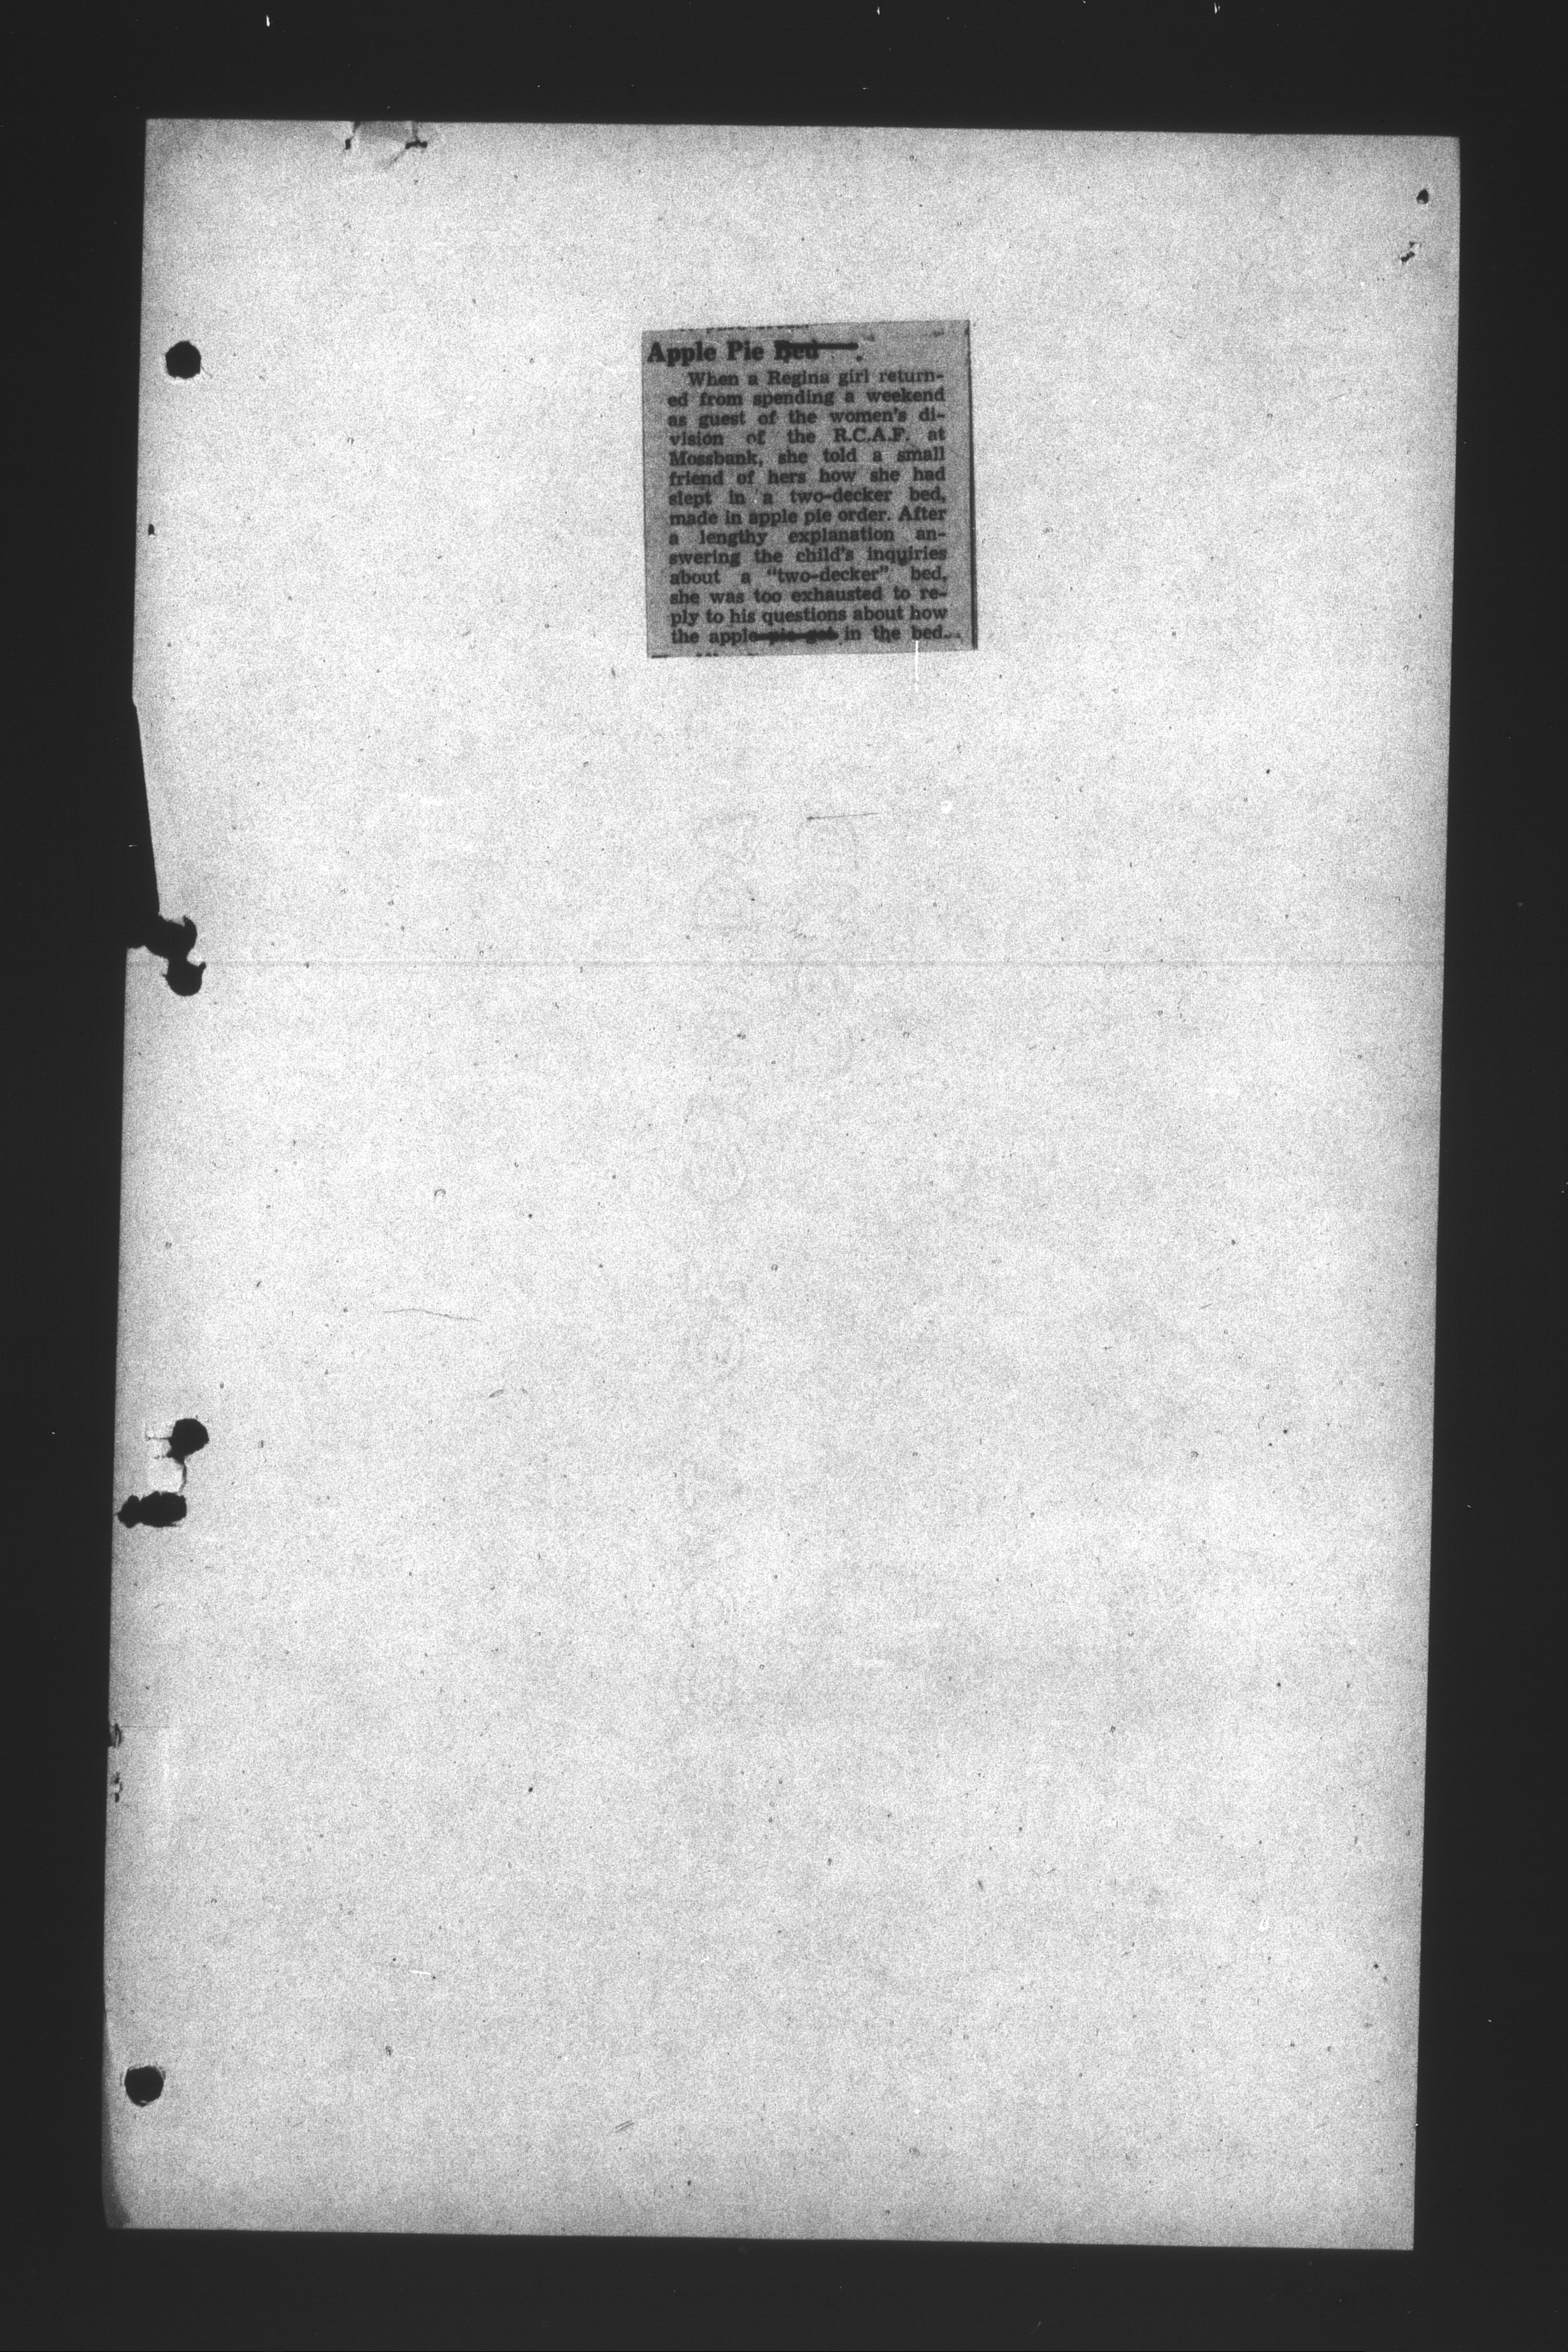 Apple Pie Bed
When a Regina girl return-
ed from spending a weekend
as guest of the women's di-
vision of the R.C.A.F. at
Mossbank, she told a small
friend of hers how she had
slept in a two-decker bed,
made in apple pie order. After
a lengthy explanation an-
swering the child's inquiries
about a "two-decker" bed,
she was too exhausted to re-
ply to his questions about how
the apple pie got in the bed.